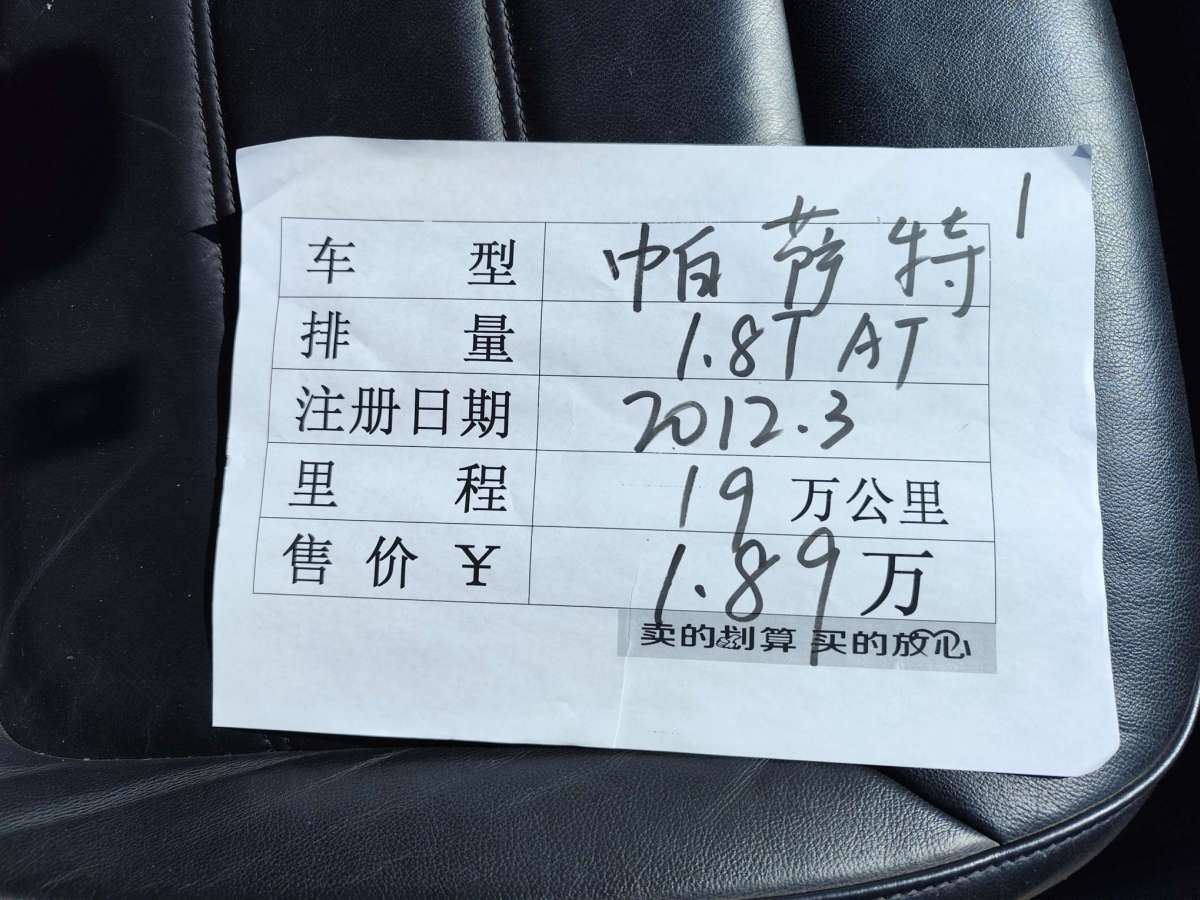 1
车型 帕萨特
排量 1.8T AT
注册日期 2012.3
里程 19万公里
售价¥ 1.89万
卖的划算 买的放心